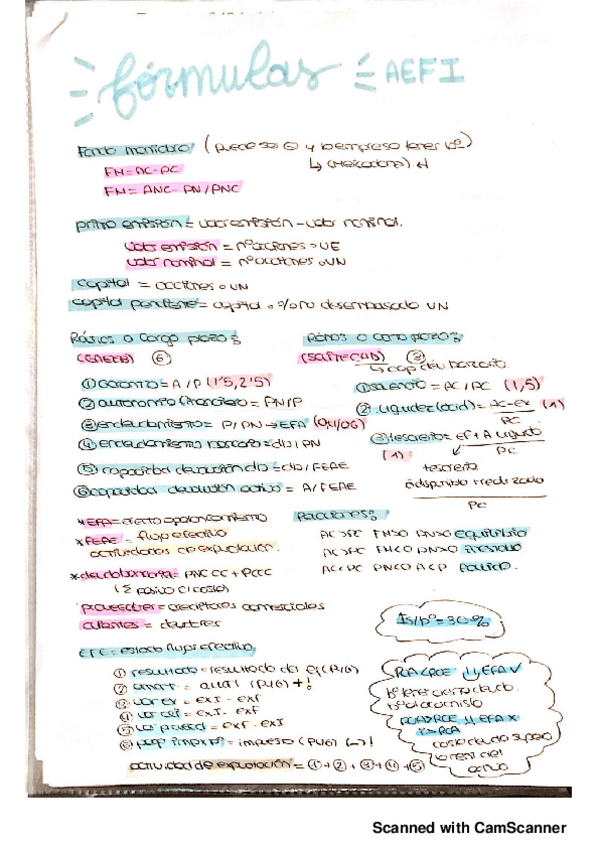 fórmulas AEFI
Fondo maniobra (puede ser ⊖ y la empresa tener bº)
↳ (Mercadona)
FM = AC - PC
FM = ANC - PN / PNC
prima emisión = valor emisión - valor nominal.
valor emisión = nº acciones · VE
valor nominal = nº acciones · VN
capital = acciones · VN
capital pendiente = capital · % no desembolsado VN
Ratios a largo plazo:
⑥
① Garantía = A / P (1'5, 2'5)
② autonomía financiera = PN/P
③ endeudamiento = P / PN → EFA
④ endeudamiento bancario = db / PN
⑤ capacidad devolución db = db / FEAE
⑥ capacidad devolución activo = A / FEAE
Ratios a corto plazo:
① solvencia = AC / PC (1,5)
② liquidez (acid) = AC - Ex / PC (1)
③ tesorería = ef + A líquido / PC
(1)
tesorería
o disponible + realizado
PC
* EFA = efecto apalancamiento
* FEAE = flujo efectivo
actividades de explotación.
* deuda bancaria = PNC CC + PC CC
(Σ pasivo c/ coste)
proveedores = acreedores comerciales
clientes = deudores
AC > PC FM > 0 PN > 0 equilibrio
AC > PC FM < 0 PN > 0
AC < PC PN < 0 A < P
IS/bº = 30%
EFE = estado flujos efectivo
① resultado = resultado del ej (PyG)
② amort = amort (PyG) + !
③ var ex = exI - exF
④ var = exI - exF
⑤ var proveed = exF - exI
⑥ pago imp = impuesto (PyG) (-) !
actividad de explotación = ① + ② + ③ + ④ + ⑤
RCA < RCE EFA ✓
bº accionista
RCA > RCE EFA x
coste deuda supera
la rent del
activo
Scanned with CamScanner